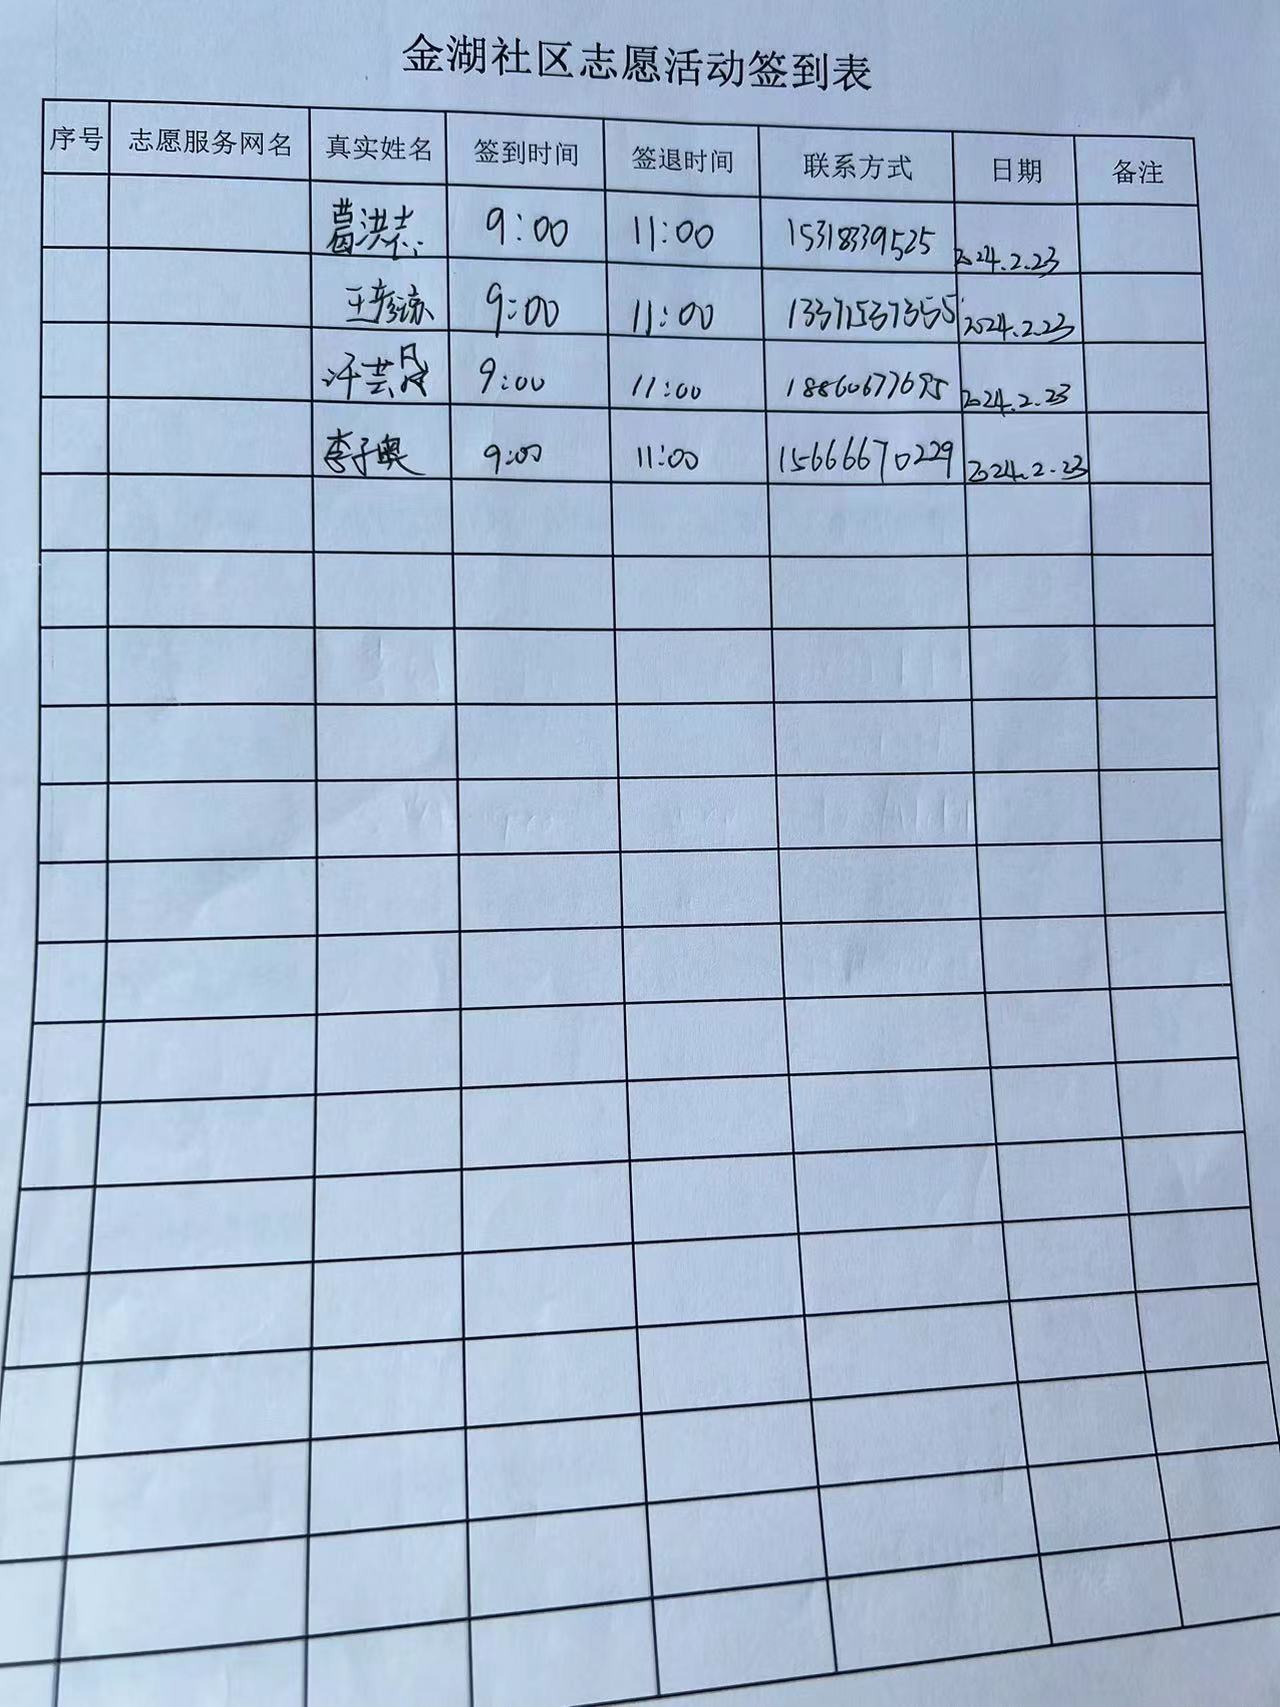 金湖社区志愿活动签到表
序号 志愿服务网名 真实姓名 签到时间 签退时间 联系方式 日期 备注
葛洪志 9:00 11:00 15318339525 2024.2.23
王彦 9:00 11:00 13371537355 2024.2.23
芸 9:00 11:00 18860677695 2024.2.23
李子奥 9:00 11:00 15666670229 2024.2.23